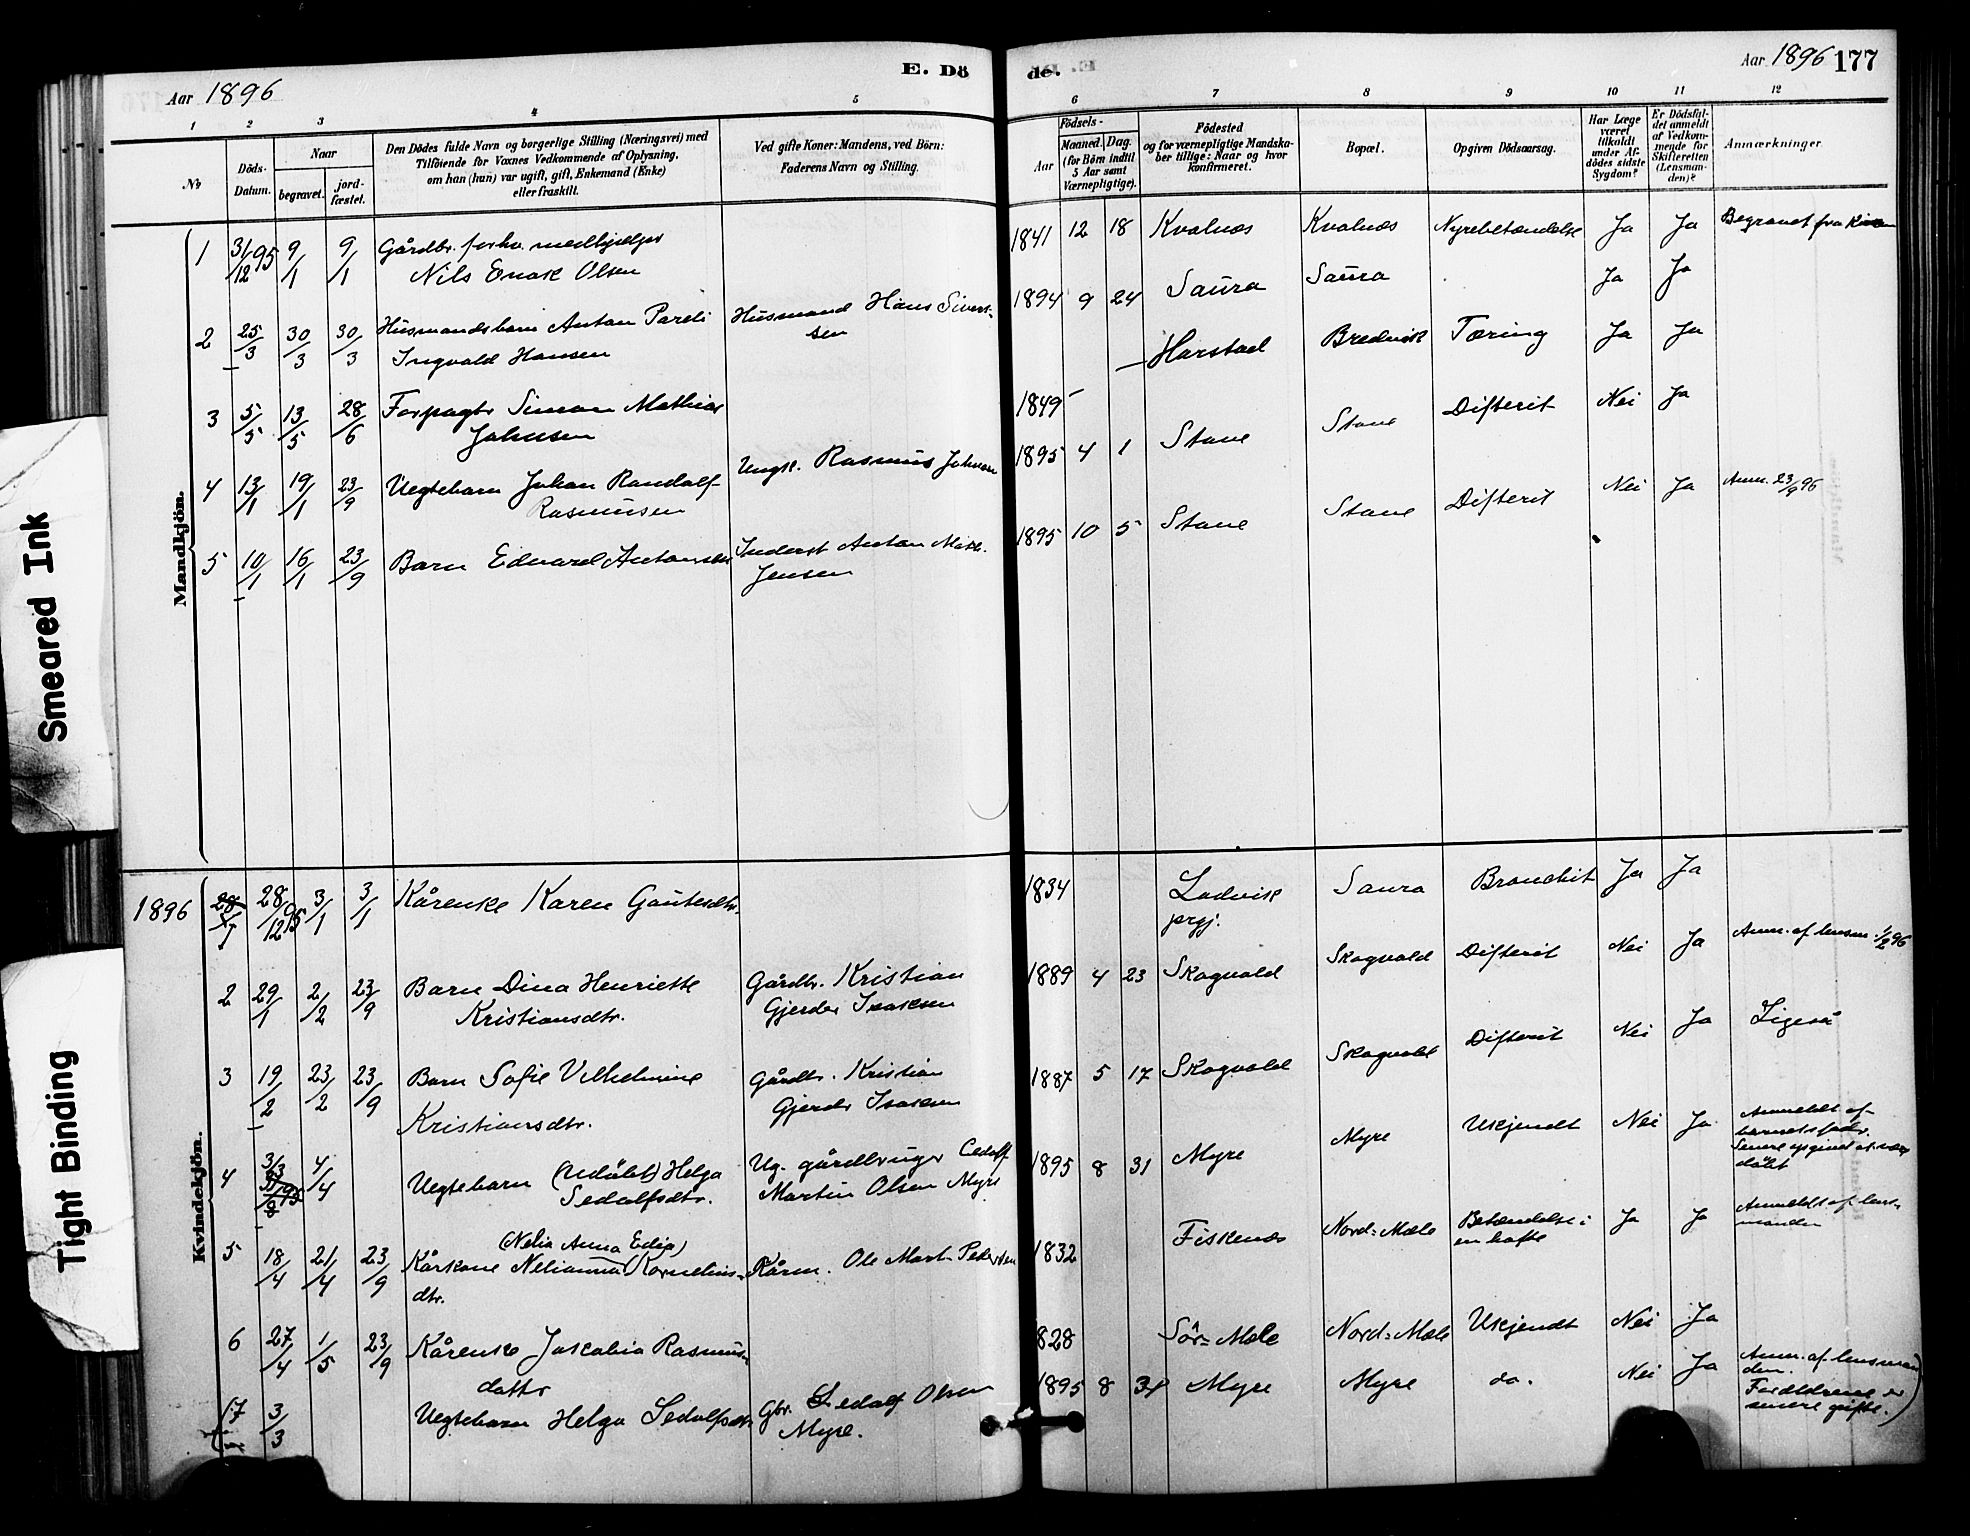 Smeared Ink
Tight Binding
Aar 1896
E. Dö
1 2 3 4 5
No
Döds-Datum.
Naar
begravet.
jordfæstet.
Den Dödes fulde Navn og borgerlige Stilling (Næringsvei) med
Tilföiende for Voxnes Vedkommende af Oplysning,
om han (hun) var ugift, gift, Enkemand (Enke)
eller fraskilt.
Ved gifte Koner: Mandens, ved Börn:
Faderens Navn og Stilling.
Mandkjön.
1 31/12 95 9/1 9/1 Gårdbr. forhv. medhjelper
Nils Enok Olsen
2 25/3 30/3 30/3 Husmandsbarn Anton Pareli Husmand Hans Sivert-
Ingvald Hansen sen
3 5/5 13/5 28/6 Forpagtr Simon Mathias
Johnsen
4 13/1 19/1 23/9 Uegtebarn Johan Randolf Ungk. Rasmus Johnsen
Rasmussen
5 10/1 16/1 23/9 Barn Edvard Antonsen Inderst Anton Mikk.
Jensen
Kvindekjön.
1896 28/12 95 3/1 3/1 Kårenke Karen Gautesdtr.
2 29/1 2/2 23/9 Barn Dina Henriette Gårdbr. Kristian
Kristiansdtr. Gjerder Isaksen
3 19/2 23/2 23/9 Barn Sofie Vilhelmine Gårdbr. Kristian
Kristiansdtr. Gjerder Isaksen
4 3/3 4/4 Uegtebarn (udöbt) Helga Ug. gårdbruger Cedolf
Sedolfsdtr. Martin Olsen Myre
(Nelia Anna Edia)
5 18/4 21/4 23/9 Kårkone Nelianna Kornelius- Kårm. Ole Mart. Pedersen
dtr.
6 27/4 1/5 23/9 Kårenke Jakobia Rasmus-
datter
(7 3/3 Uegtebarn Helga Sedolfsdtr. Gbr. Sedolf Olsen
Myre.
de.
Aar 1896 177
6 7 8 9 10 11 12
Födsels-
Aar
Maaned. Dag.
(for Börn indtil
5 Aar samt
Værnepligtige).
Födested
og for værnepligtige Mandska-
ber tillige: Naar og hvor
konfirmeret.
Bopæl.
Opgiven Dödsaarsag.
Har Læge
været
tilkaldt
under Af-
dödes sidste
Sygdom?
Er Dödsfal-
det anmeldt
af Vedkom-
mende for
Skifteretten
(Lensman-
den)?
Anmærkninger.
1841 12 18 Kvalnæs Kvalnæs Nyrebetændelse Ja Ja Begravet fra
1894 9 24 Saura Saura Ja Ja
Harstad Bredvik Tæring Ja Ja
1849
1895 4 1 Stave Stave Difterit Nei Ja
1895 10 5 Stave Stave Difterit Nei Ja Anm. 23/9 96
1834 Lødvik Saura Bronchit Ja Ja
prgj.
1889 4 23 Skogvold Skogvold Difterit Nei Ja Anm. af lensm. 1/2 96
1887 5 17 Skogvold Skogvold Difterit Nei Ja Ligeså
1895 8 31 Myre Myre Ukjendt Nei Ja Anmeldt af
barnets fader.
Senere opgivet at være
döbt
1832 Fiskenes Nord-Mæle Betændelse i Ja Ja Anmeldt af lens-
en hofte manden
828 Sör-Mæle Nord-Mæle Ukjendt Nei Ja
1895 8 31 Myre Myre do. Nei Ja Anm. af lensman
den.
Forældrene er
senere gifte.)